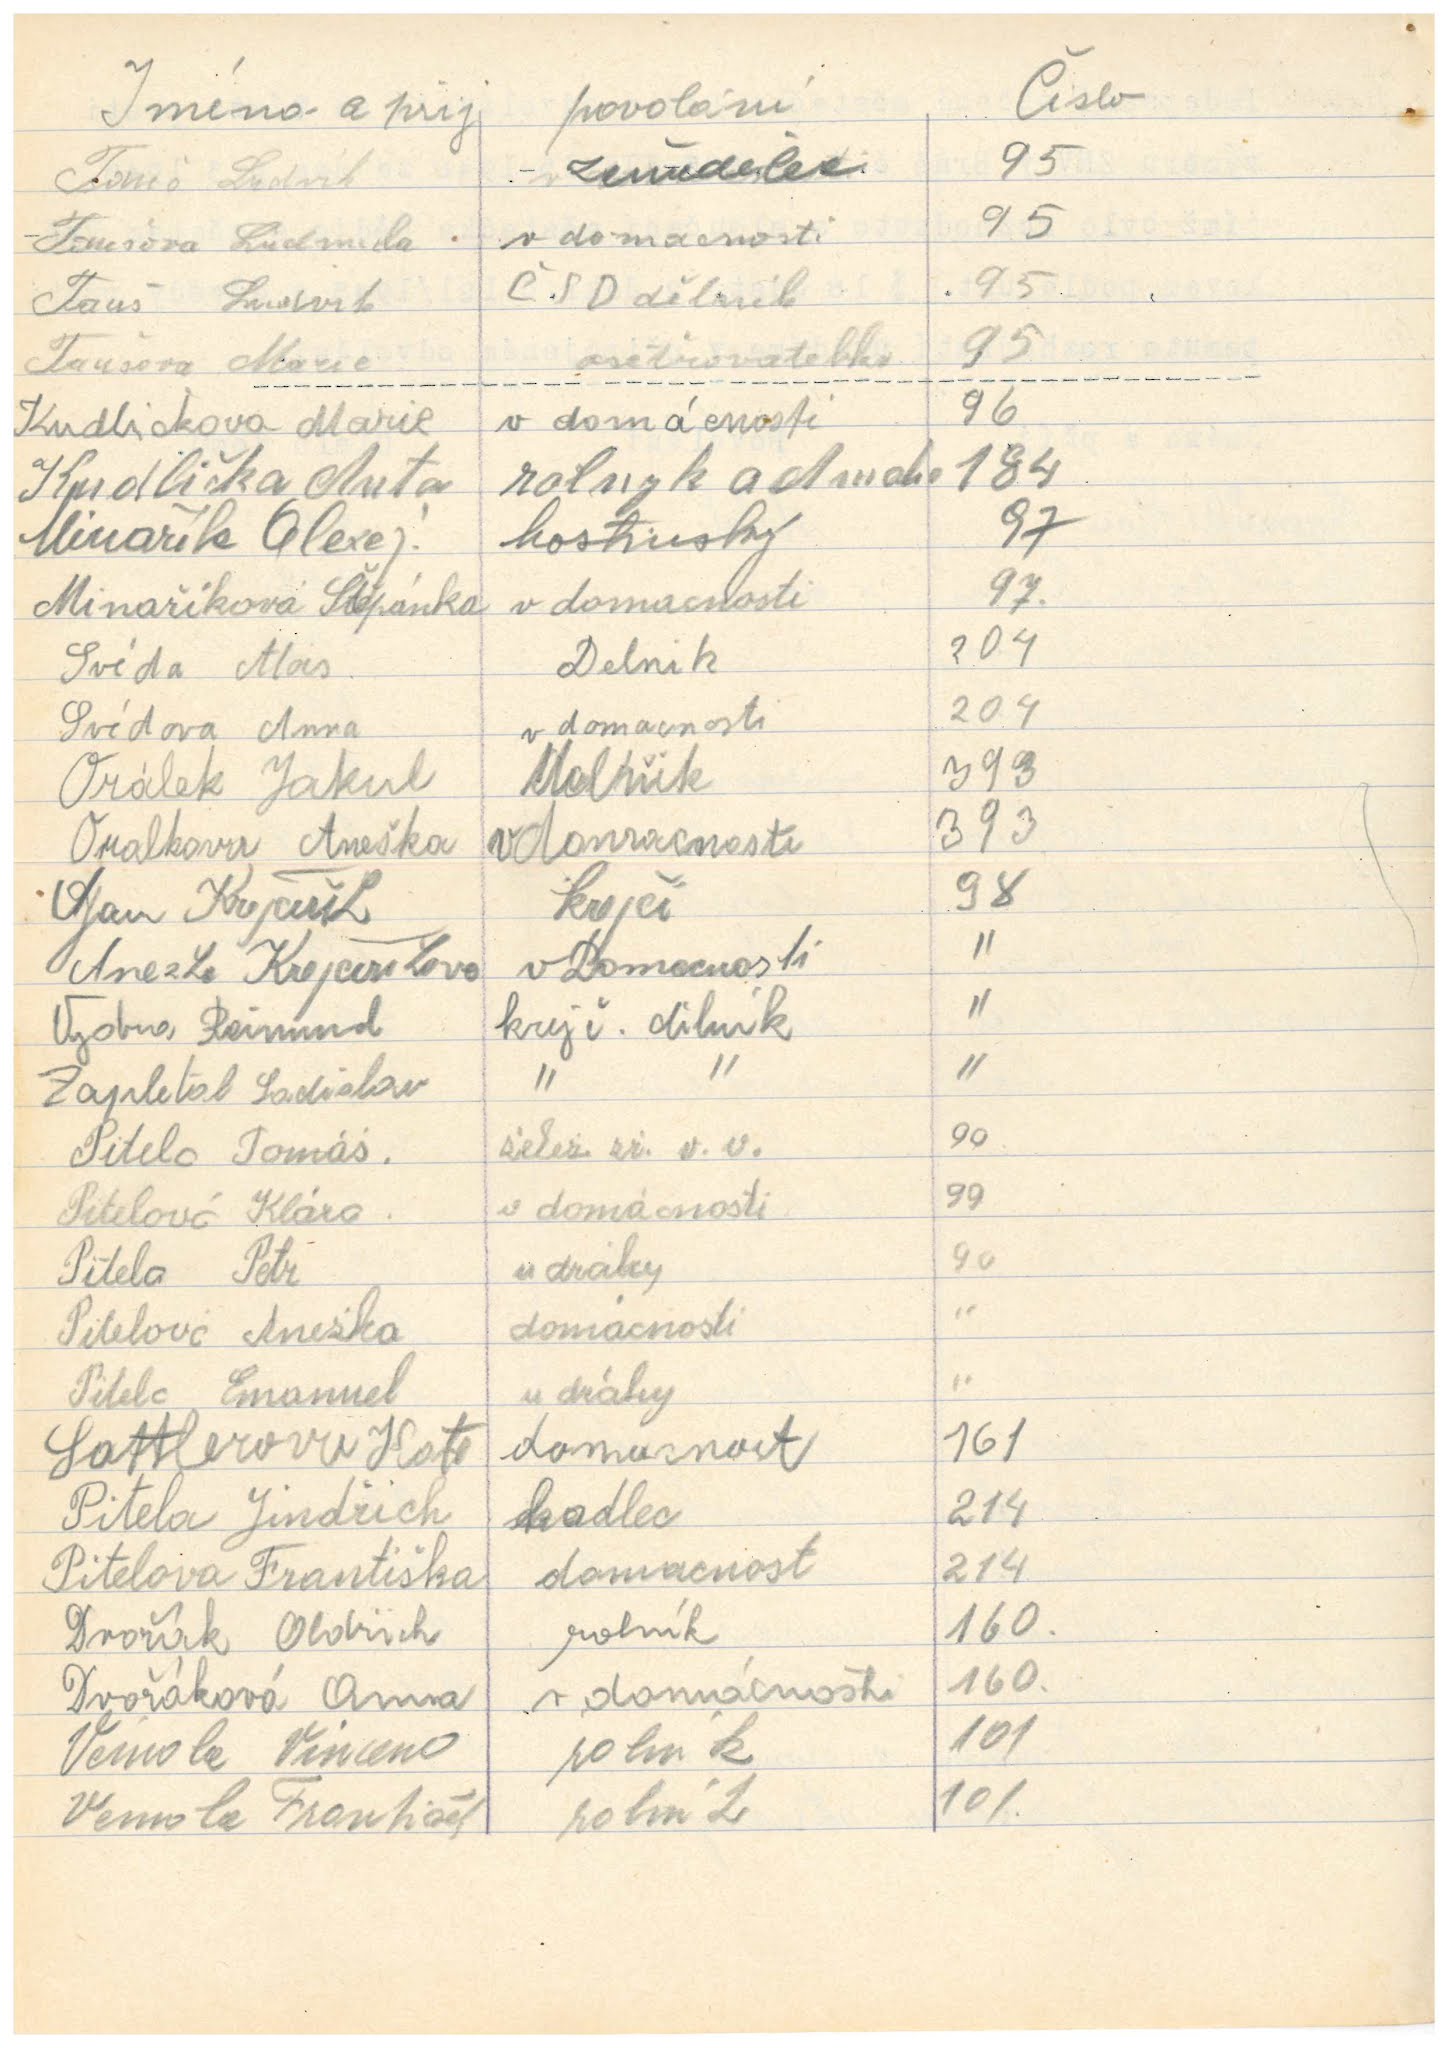 Jméno a příj povolání Číslo
Tauš Ludvík zemědelec 95
Taušova Ludmila v domacnosti 95
Tauš Ludvik ČSD dělnik 95
Taušova Marie ošetřovatelka 95
Kudličkova Marie v domácnosti 96
Kudlička Anta rolnyk 184
Minařík Alexej hostinský 97
Minaříková Štěpánka v domacnosti 97.
Svéda Alois Delnik 204
Svédova Anna v domacnosti 204
Orálek Jakub 393
Oralkova Aneška v domacnosti 393
Jan Krejčiřík krejčí 98
Anežka Krejčiříkova v Domacnosti "
Vyzobna Reimund krejč. dilník "
Zapletal Ladislav " " "
Pitela Tomáš. želez. zř. v. v. 90
Pitelová Klára v domácnosti 99
Pitela Petr u dráhy 90
Pitelová Anežka domácnosti "
Pitela Emanuel u dráhy "
Sattlerova Kate domacnost 161
Pitela Jindřich kadlec 214
Pitelova Františka domacnost 214
Dvořák Oldřich rolník 160.
Dvořáková Anna v domácnosti 160.
Vémola Vincenc rolník 101
Vemola František rolník 101.